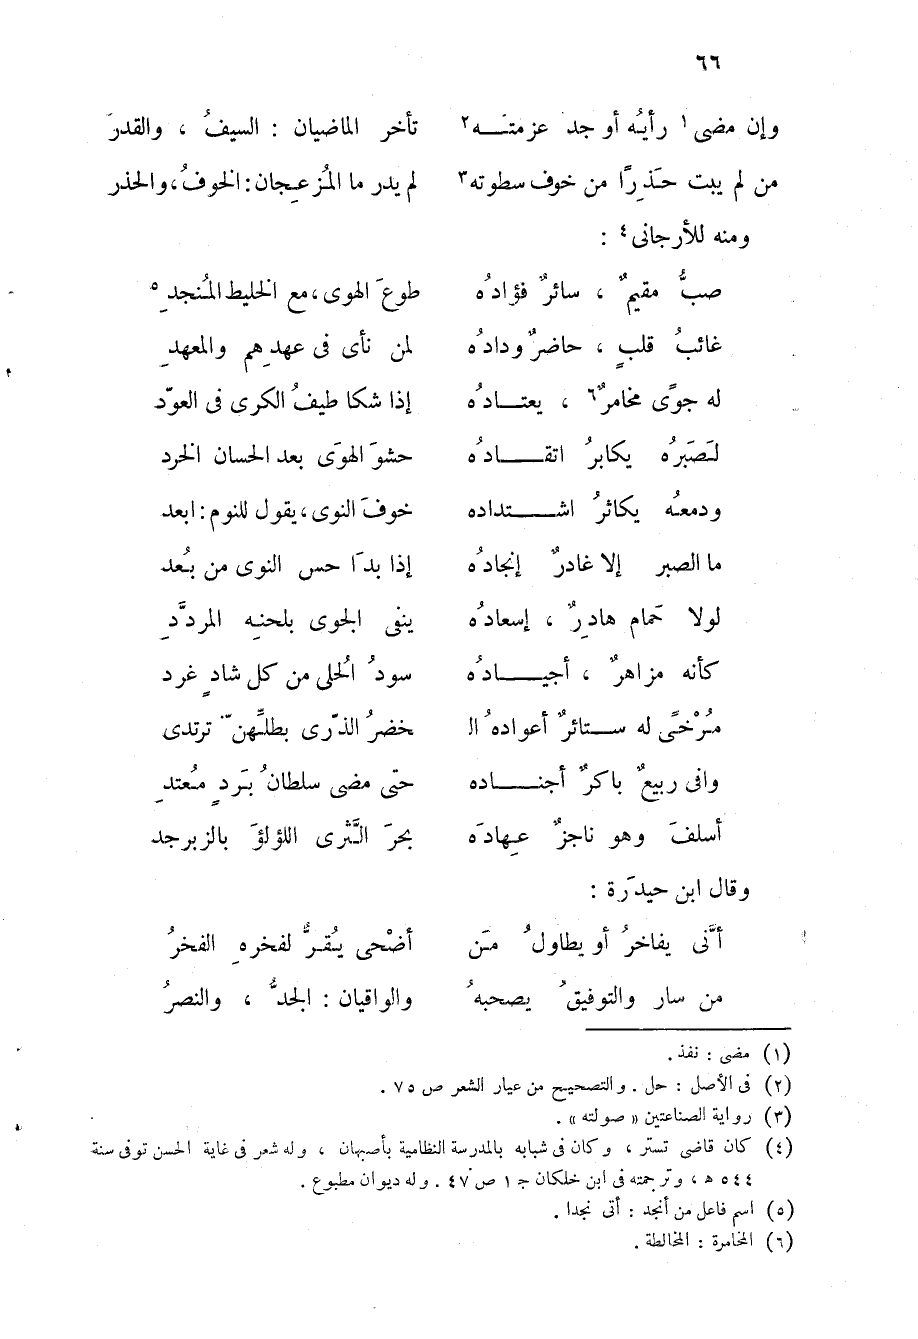 ٦٦
وإن مضى ١ رأيُه أو جد عزمتَــه ٢ تأخر الماضيان : السيفُ ، والقدرَ
من لم يبت حَذِرًا من خوف سطوته ٣ لم يدر ما المُزعِجان : الخوفُ ، والحذر
ومنه للأرجانى ٤ :
صبٌّ مقيمٌ ، سائرٌ فؤادُه طوعَ الهوى ، مع الخليط المُنجدِ ٥
غائبُ قلبٍ ، حاضرٌ ودادُه لمن نأى فى عهدِهم والمعهدِ
له جوًى مخامرٌ ٦ ، يعتــادُه إذا شكا طيفُ الكرى فى العوّد
لَصَبَرُه يكابرُ اتقــادُه حشوَ الهوَى بعد الحسان الخرد
ودمعُه يكاثرُ اشــتداده خوفَ النوى ، يقول للنوم : ابعد
ما الصبر إلا غادرٌ إنجادُه إذا بدَا حس النوى من بُعد
لولا حَمام هادِرٌ ، إسعادُه ينفى الجوى بلحنِه المردَّدِ
كأنه مزاهرٌ ، أجيــادُه سودُ الحُلى من كل شادٍ غرد
مُرْخًى له ســتائرٌ أعواده ُ الـ خضرُ الذّرى بطلِّهنّ ترتدى
وافى ربيعٌ باكرٌ أجنــاده حتى مضى سلطانُ بَردٍ مُعتدِ
أسلفَ وهو ناجزٌ عِهادَه بحرَ الثَّرى اللؤلؤَ بالزبرجد
وقال ابن حيدَرة :
أنَّى يفاخرُ أو يطاولُ مَن أضْحى يُقرٌّ لفخرهِ الفخرُ
من سار والتوفيقُ يصحبهُ والواقيان : الجدُّ ، والنصرُ
(١) مضى : نفذ .
(٢) فى الأصل : حل . والتصحيح من عيار الشعر ص ٧٥ .
(٣) رواية الصناعتين « صولته » .
(٤) كان قاضى تستر ، وكان فى شبابه بالمدرسة النظامية بأصبهان ، وله شعر فى غاية الحسن توفى سنة
٥٤٤ هـ ، وترجمته فى ابن خلكان جـ ١ ص ٤٧ . وله ديوان مطبوع .
(٥) اسم فاعل من أنجد : أتى نجدا .
(٦) المخامرة : المخالطة .